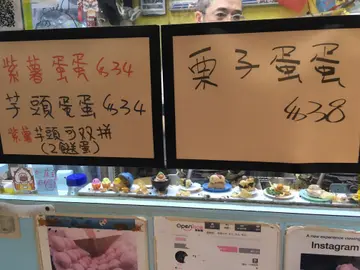 紫薯蛋蛋$34
芋頭蛋蛋$34
紫薯芋頭可双拼
(2款蛋)
栗子蛋蛋
$38
OpenRice
Instagram